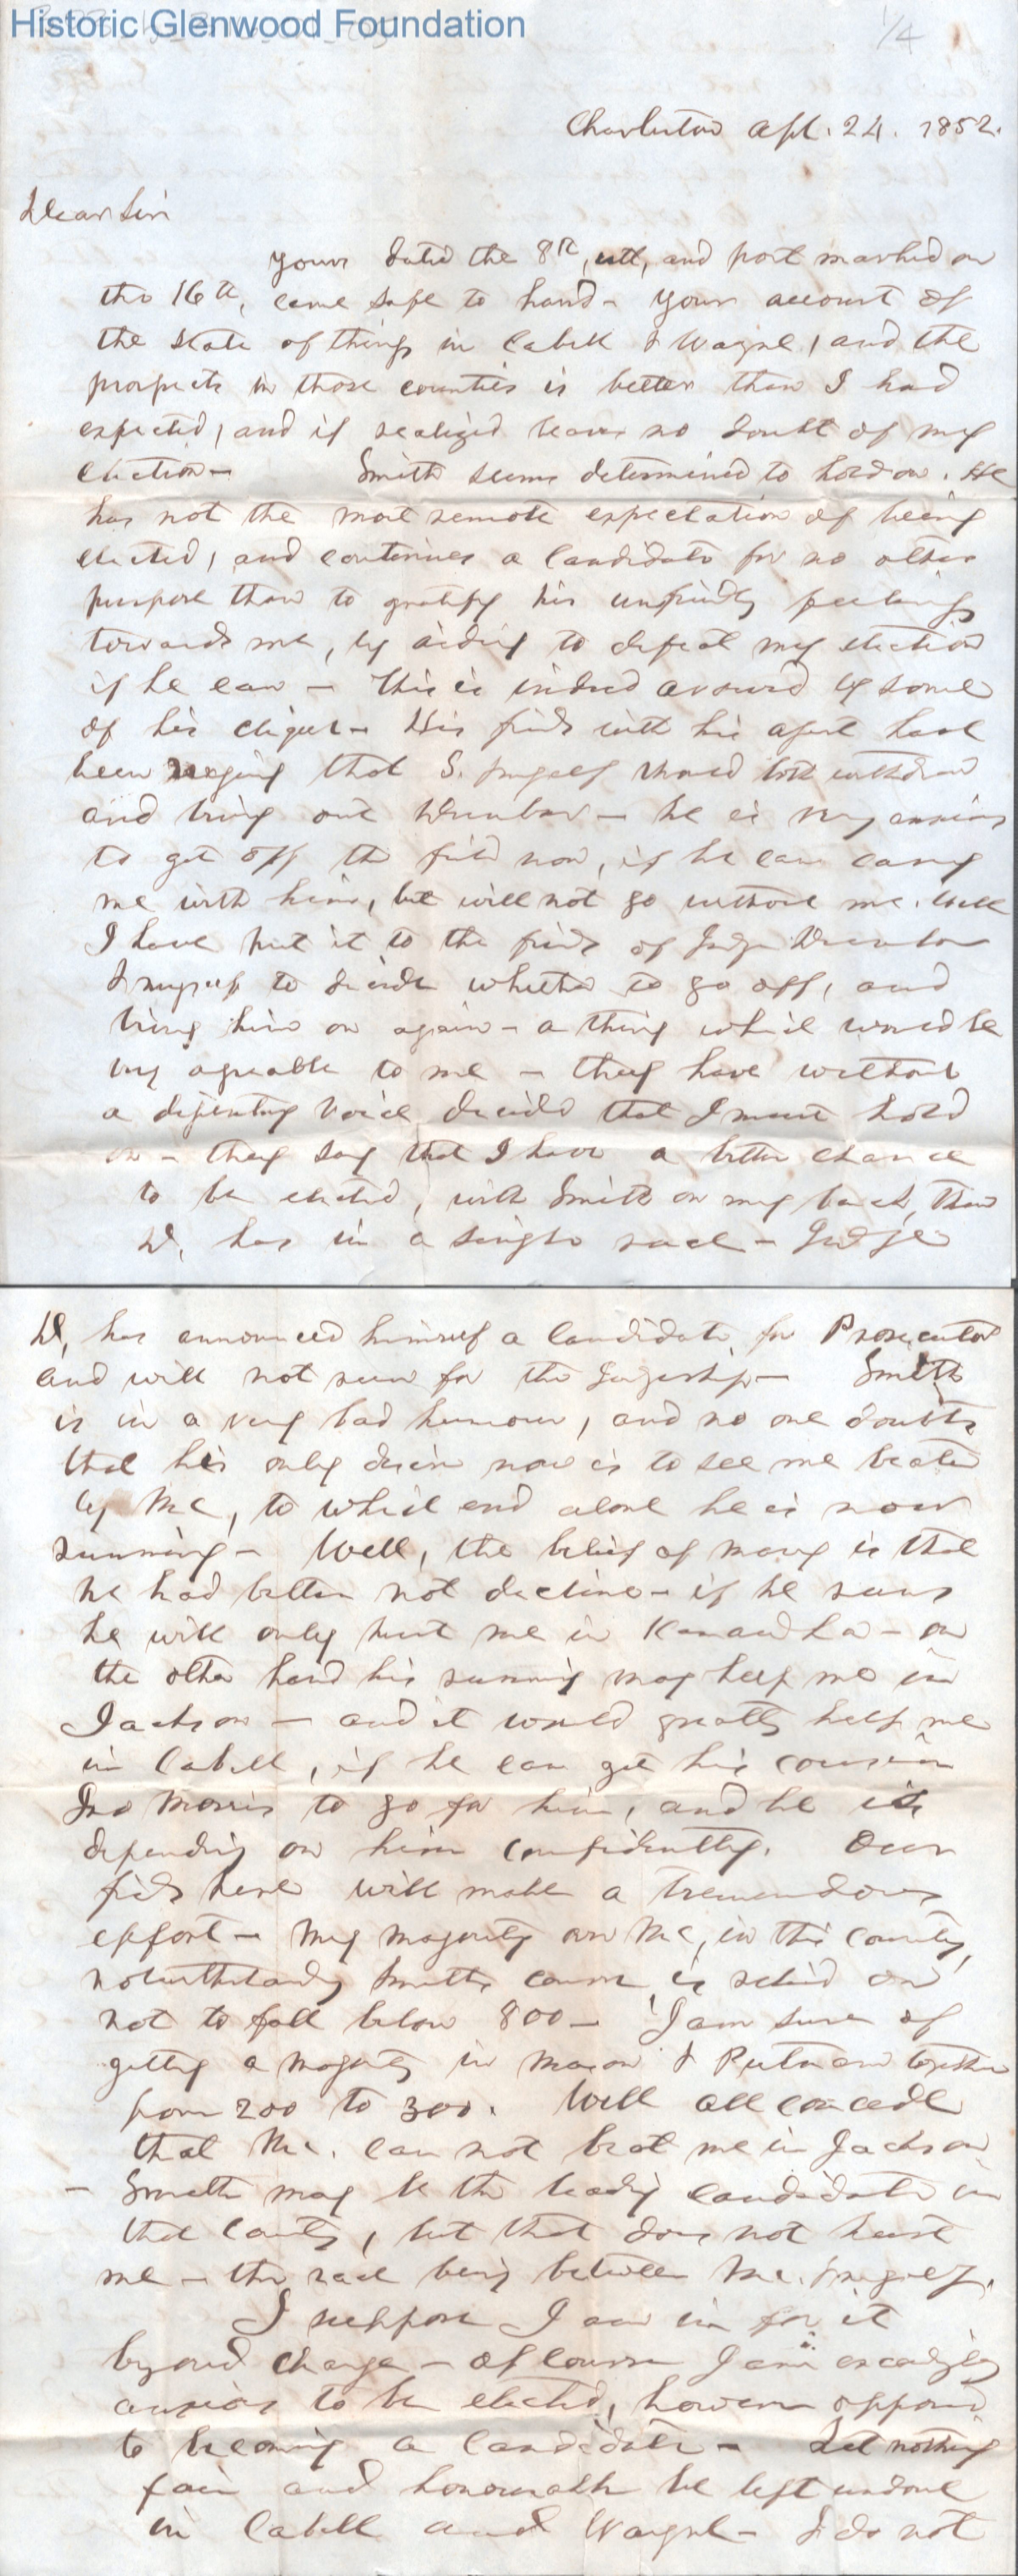 Historic Glenwood Foundation
1/4
Charleston Apl. 24. 1852.
Dear Sir
Yours dated the 8th, ult, and post marked on
the 16th, came safe to hand - Your account of
the state of things in Cabell & Wayne, and the
prospects in those counties is better than I had
expected, and if realized leaves no doubt of my
election - Smith seems determined to hold on. He
has not the most remote expectation of being
elected, and continues a candidate for no other
purpose than to gratify his unfriendly feelings
towards me, by aiding to defeat my election
if he can - This is indeed avowed by some
of his clique - His frds with his assent have
been urging that S. & myself should both withdraw
and bring out Dunbar - he is very anxious
to get off the field now, if he can carry
me with him, but will not go without me. Well
I have put it to the frds of Judge Dunbar
& myself to decide whether to go off, and
bring him on again - a thing which would be
very agreable to me - they have without
a dissenting voice decided that I must hold
on - they say that I have a better chance
to be elected, with Smith on my back, than
D. has in a single race - Judge
D. has announced himself a candidate for Prosecutor
and will not run for the Judgeship - Smith
is in a very bad humour, and no one doubts
that his only desire now is to see me beaten
by Mc, to which end alone he is now
running - Well, the belief of many is that
he had better not decline - if he runs
he will only hurt me in Kanawha - on
the other hand his running may help me in
Jackson - and it would greatly help me
in Cabell, if he can get his cousin
Jno Morris to go for him, and he is
depending on him confidently. Our
frds here will make a tremendous
effort - My majority over Mc, in this county,
notwithstanding Smiths course, is relied on
not to fall below 800 - I am sure of
getting a majority in Mason & Putnam together
from 200 to 300. Well all concede
that Mc. can not beat me in Jackson
- Smith may be the leading candidate in
that county, but that does not hurt
me - the race being between Mc. & myself.
I suppose I am in for it
beyond change - of course I am exceedingly
anxious to be elected, however opposed
to becoming a candidate - Let nothing
fair and honourable be left undone
in Cabell and Wayne - I do not